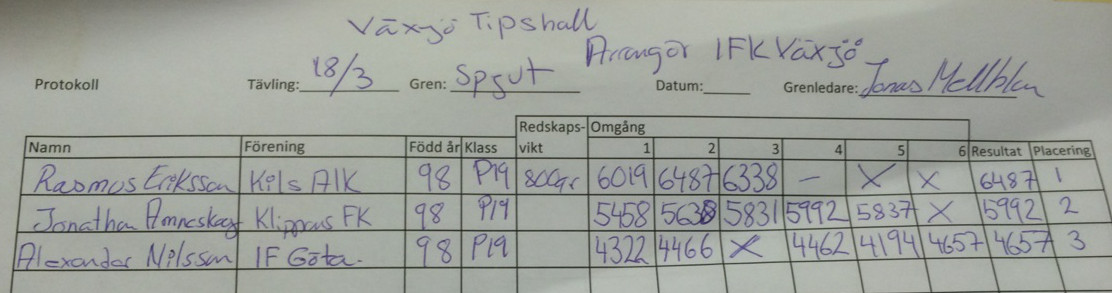 Växjö Tipshall
Arrangör IFK Växjö
Protokoll Tävling: 18/3 Gren: Spjut Datum: Grenledare: Jonas
Redskaps- Omgång
Namn Förening Född år Klass vikt 1 2 3 4 5 6 Resultat Placering
Rasmus Eriksson Kils AIK 98 P19 800gr 6019 6487 6338 – X X 6487 1
Jonathan Klippans FK 98 P19 5458 5638 5831 5992 5837 X 5992 2
Alexander Nilsson IF Göta. 98 P19 4322 4466 X 4462 4194 4657 4657 3